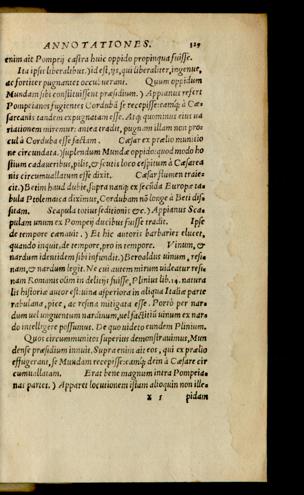 ANNOTATIONES. 329
enim ait Pompeij castra huic oppido propinqua fuisse.
Ita ipsis liberalibus.) id est, ijs, qui liberaliter, ingenue,
ac fortiter pugnantes occubuerant. Quum oppidum
Mundam sibi constituissent præsidium.) Appianus refert
Pompeianos fugientes Cordubã se recepisse: eamq́; à Cæ-
sareanis tandem expugnatam esse. Atq; quominus eius va
riationem miremur: antea tradit, pugnam illam non pro-
cul à Corduba esse factam. Cæsar ex prælio munitio
ne circundata.) suplendum Mundæ oppido: quod modo ho
stium cadaueribus, pilis, & scutis loco cespitum à Cæsarea
nis circumuallatum esse dixit. Cæsar flumen traie-
cit.) Betim haud dubie, supra nanq; ex secũda Europæ ta-
bula Ptolemaica diximus, Cordubam nõ longe à Beti dis-
sitam. Scapula totius seditionis &c.) Appianus Sca-
pulam unum ex Pompeij ducibus fuisse tradit. Ipse
de tempore cœnauit.) Et hic autoris barbaries elucet,
quando inquit, de tempore, pro in tempore. Vinum, &
nardum identidem sibi infundit.) Beroaldus uinum, resi-
nam, & nardum legit. Ne cui autem mirum uideatur resi-
nam Romanis olim in delitijs fuisse, Plinius lib. 14. natura
lis historiæ autor est: uina asperiora in aliqua Italiæ parte
rabulana, pice, ac resina mitigata esse. Porrò per nar-
dum uel unguentum nardinum, uel factitiũ uinum ex nar-
do intelligere possumus. De quo uideto eundem Plinium.
Quos circummunitos superius demonstrauimus, Mun
dense præsidium inuuit. Supra enim ait: eos, qui ex prælio
effugerant, se Mundam recepisse: eamq́; dein à Cæsare cir
cumuallatam. Erat bene magnum intra Pompeia-
nas partes.) Apparet locutionem istam alioquin non ille-
x 5 pidam